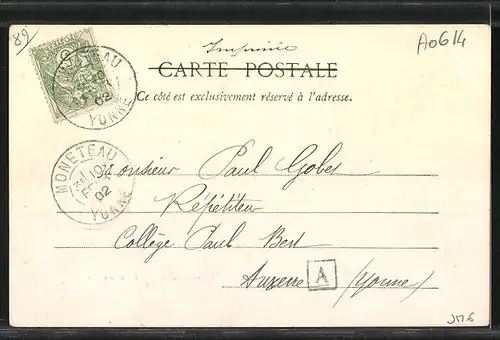 89
Imprimé
A0614
CARTE POSTALE
Ce côté est exclusivement réservé à l'adresse.
YONNE
02
MONÉTEAU
02
YONNE
Monsieur Paul Gobes
Répétiteur
Collège Paul Bert
Auxerre A (Yonne)
JM6